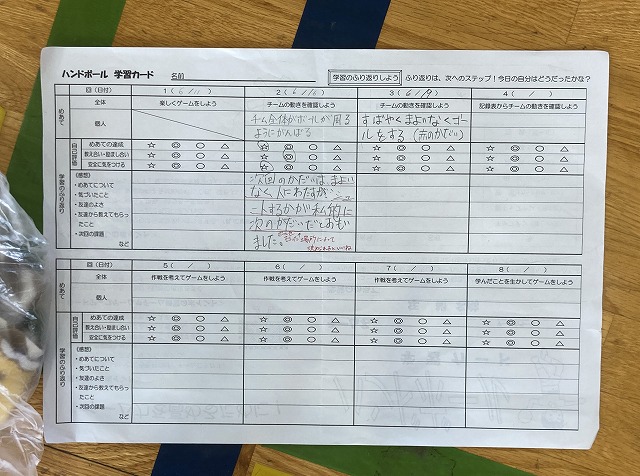 ハンドボール 学習カード 名前 学習のふり返りしよう ふり返りは、次へのステップ！今日の自分はどうだったかな？
回(日付) 1(6/11) 2(6/16) 3(6/19) 4( / )
めあて 全体 楽しくゲームをしよう チームの動きを確認しよう チームの動きを確認しよう 記録表からチームの動きを確認しよう
個人 チーム全体がボールが周る すばやくまよいなくゴー
ようにがんばる ルをする(赤のかだい)
自己評価 めあての達成 ☆ ◎ ○ △ ☆ ◎ ○ △ ☆ ◎ ○ △ ☆ ◎ ○ △
教え合い・励まし合い ☆ ◎ ○ △ ☆ ◎ ○ △ ☆ ◎ ○ △ ☆ ◎ ○ △
安全に気をつける ☆ ◎ ○ △ ☆ ◎ ○ △ ☆ ◎ ○ △ ☆ ◎ ○ △
学習のふり返り
(感想)
・めあてについて
・気づいたこと
・友達のよさ
・友達から教えてもらっ
たこと
・次回の課題
など
次回のかだいは、まよい
なく、人にわたすが、シュ
ートするかが私的に
次のかだいだとおもい
ました。
回(日付) 5( / ) 6( / ) 7( / ) 8( / )
めあて 全体 作戦を考えてゲームをしよう 作戦を考えてゲームをしよう 作戦を考えてゲームをしよう 学んだことを生かしてゲームをしよう
個人
自己評価 めあての達成 ☆ ◎ ○ △ ☆ ◎ ○ △ ☆ ◎ ○ △ ☆ ◎ ○ △
教え合い・励まし合い ☆ ◎ ○ △ ☆ ◎ ○ △ ☆ ◎ ○ △ ☆ ◎ ○ △
安全に気をつける ☆ ◎ ○ △ ☆ ◎ ○ △ ☆ ◎ ○ △ ☆ ◎ ○ △
学習のふり返り
(感想)
・めあてについて
・気づいたこと
・友達のよさ
・友達から教えてもらっ
たこと
・次回の課題
など